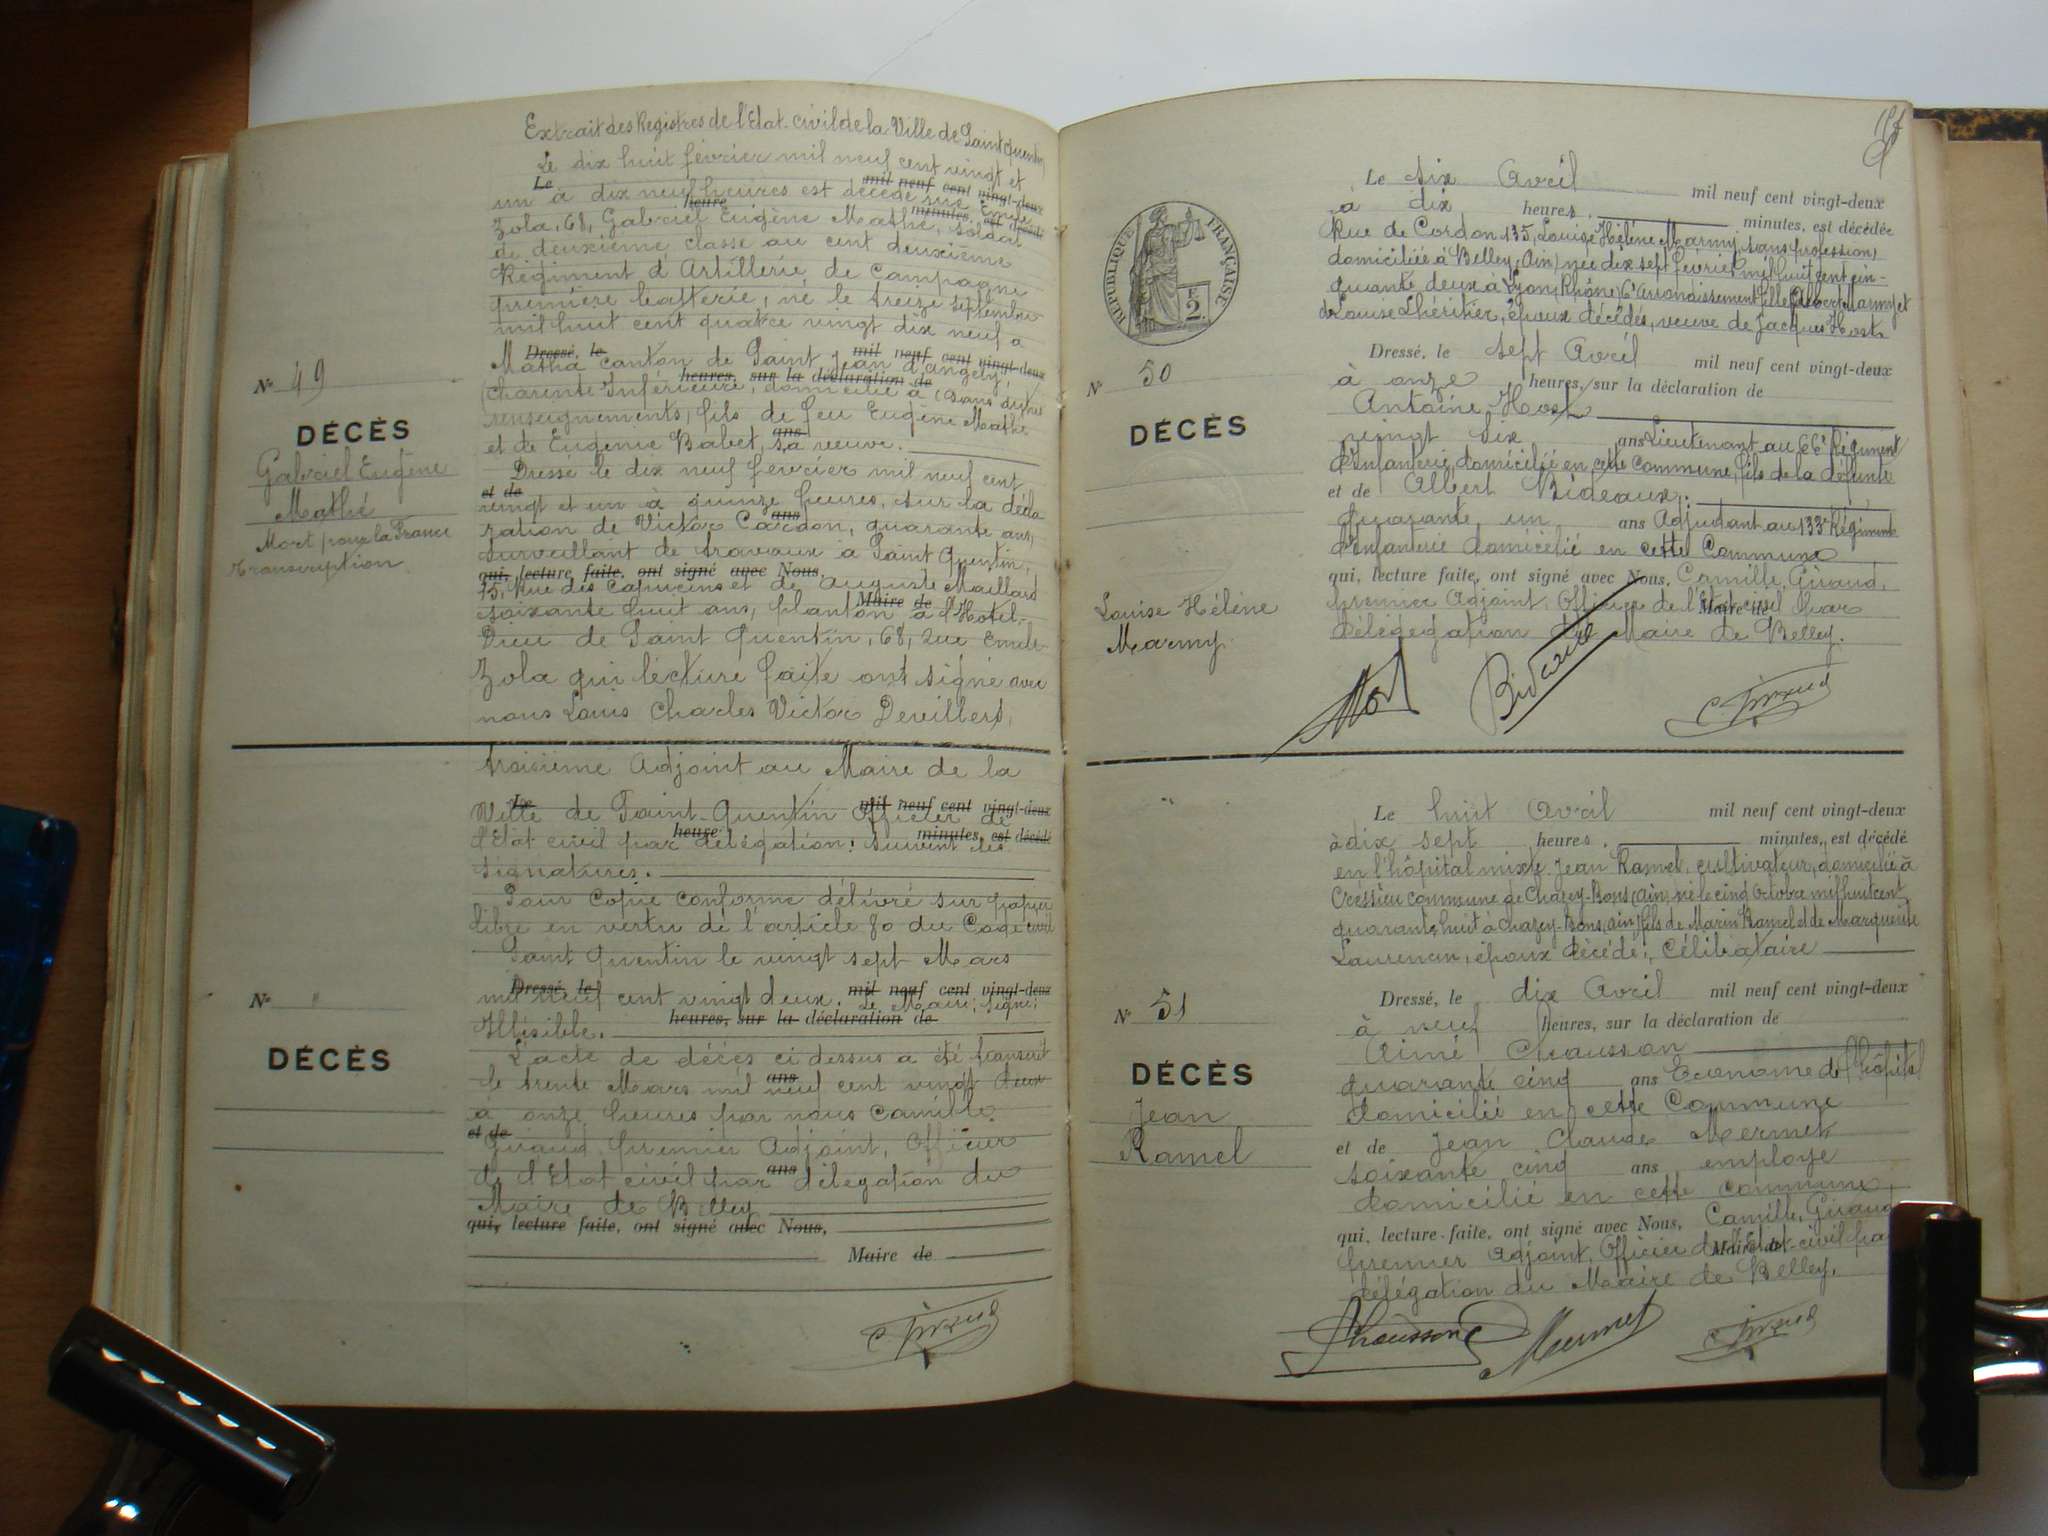 Extrait des Registres de l'Etat-civil de la Ville de Saint Quentin
Le dix huit février mil neuf cent vingt et
Le mil neuf cent vingt-deux
un à dix neuf heures est décédé rue Emile
heure minutes, est décédé
Zola, 68, Gabriel Eugène Mathé, soldat
de deuxième classe au cent deuxième
Régiment d'Artillerie de Campagne
première batterie, né le treize septembre
mil huit cent quatre vingt dix neuf a
Dressé, le mil neuf cent vingt-deux
Matha canton de Saint Jean d'angely,
heures, sur la déclaration de
(Charente Inférieure, domicilié à (sans autres
renseignements, fils de feu Eugène Mathé
ans
et de Eugénie Babet, sa veuve.
Dressé le dix neuf février mil neuf cent
et de
vingt et un à quinze heures, sur la décla
ans
ration de Victor Cardon, quarante ans,
surveillant de travaux à Saint Quentin,
qui, lecture faite, ont signé avec Nous,
15, Rue des Capucins et de Auguste Maillard
Maire de
soixante huit ans, planton à l'Hotel-
Dieu de Saint Quentin, 68, rue Emile-
Zola qui lecture faite ont signé avec
nous Louis Charles Victor Devillers,
N° 49
DÉCÈS
Gabriel Eugène
Mathé
Mort pour la France
Transcription
troisième Adjoint au Maire de la
Le mil neuf cent vingt-deux
Ville de Saint-Quentin Officier de
heure minutes, est décédé
l'Etat civil par délégation: suivent les
signatures.
Pour copie conforme délivré sur papier
libre en vertu de l'article 80 du Code civil
Saint Quentin le vingt sept Mars
Dressé, le mil neuf cent vingt-deux
mil neuf cent vingt deux. Le Maire: signé:
heures, sur la déclaration de
Illisible.
L'acte de décès ci dessus a été transcrit
le trente Mars mil neuf cent vingt deux
ans
à onze heures par nous Camille
et de
Giraud premier Adjoint, Officier
ans
de l'Etat civil par délégation du
Maire de Belley
qui, lecture faite, ont signé avec Nous,
Maire de
C. Giraud
N° "
DÉCÈS
RÉPUBLIQUE FRANÇAISE
2
Le six Avril mil neuf cent vingt-deux
à dix heures, minutes, est décédée
Rue de Cordon 135, Louise Hélène Marmy, sans profession
domiciliée à Belley (Ain) née dix sept février mil huit cent cin-
quante deux à Lyon (Rhône) 6e arrondissement fille Albert Marmy et
de Louise Lhéritier, époux décédés, veuve de Jacques Host
Dressé, le sept Avril mil neuf cent vingt-deux
à onze heures, sur la déclaration de
Antoine Host
vingt six ans Lieutenant au 66e Régiment
d'Infanterie, domicilié en cette Commune, fils de la défunte
et de Albert Bideaux.
Quarante un ans Adjudant au 133e Régiment
d'Infanterie domicilié en cette Commune
qui, lecture faite, ont signé avec Nous, Camille Giraud,
premier Adjoint, Officier de l'Etat civil par
Maire de
délégation du Maire de Belley.
Host Bideaux C. Giraud
N° 50
DÉCÈS
Louise Hélène
Marmy
Le huit Avril mil neuf cent vingt-deux
à dix sept heures, minutes, est décédé
en l'hôpital mixte Jean Ramel, cultivateur, domicilié à
Cressieu commune de Chazey-Bons (Ain) né le cinq Octobre mil huit cent
quarante huit à Chazey-Bons (Ain) fils de Marin Ramel et de Marguerite
Laurencin, époux décédé, Célibataire
Dressé, le dix Avril mil neuf cent vingt-deux
à neuf heures, sur la déclaration de
Aimé Chausson
quarante cinq ans Econome de l'hôpital
domicilié en cette Commune
et de Jean Claude Mermet
soixante cinq ans employé
domicilié en cette commune
qui, lecture faite, ont signé avec Nous, Camille Giraud
premier Adjoint, Officier de l'Etat-civil par
Maire de
délégation du Maire de Belley.
Chausson Mermet C. Giraud
N° 51
DÉCÈS
Jean
Ramel